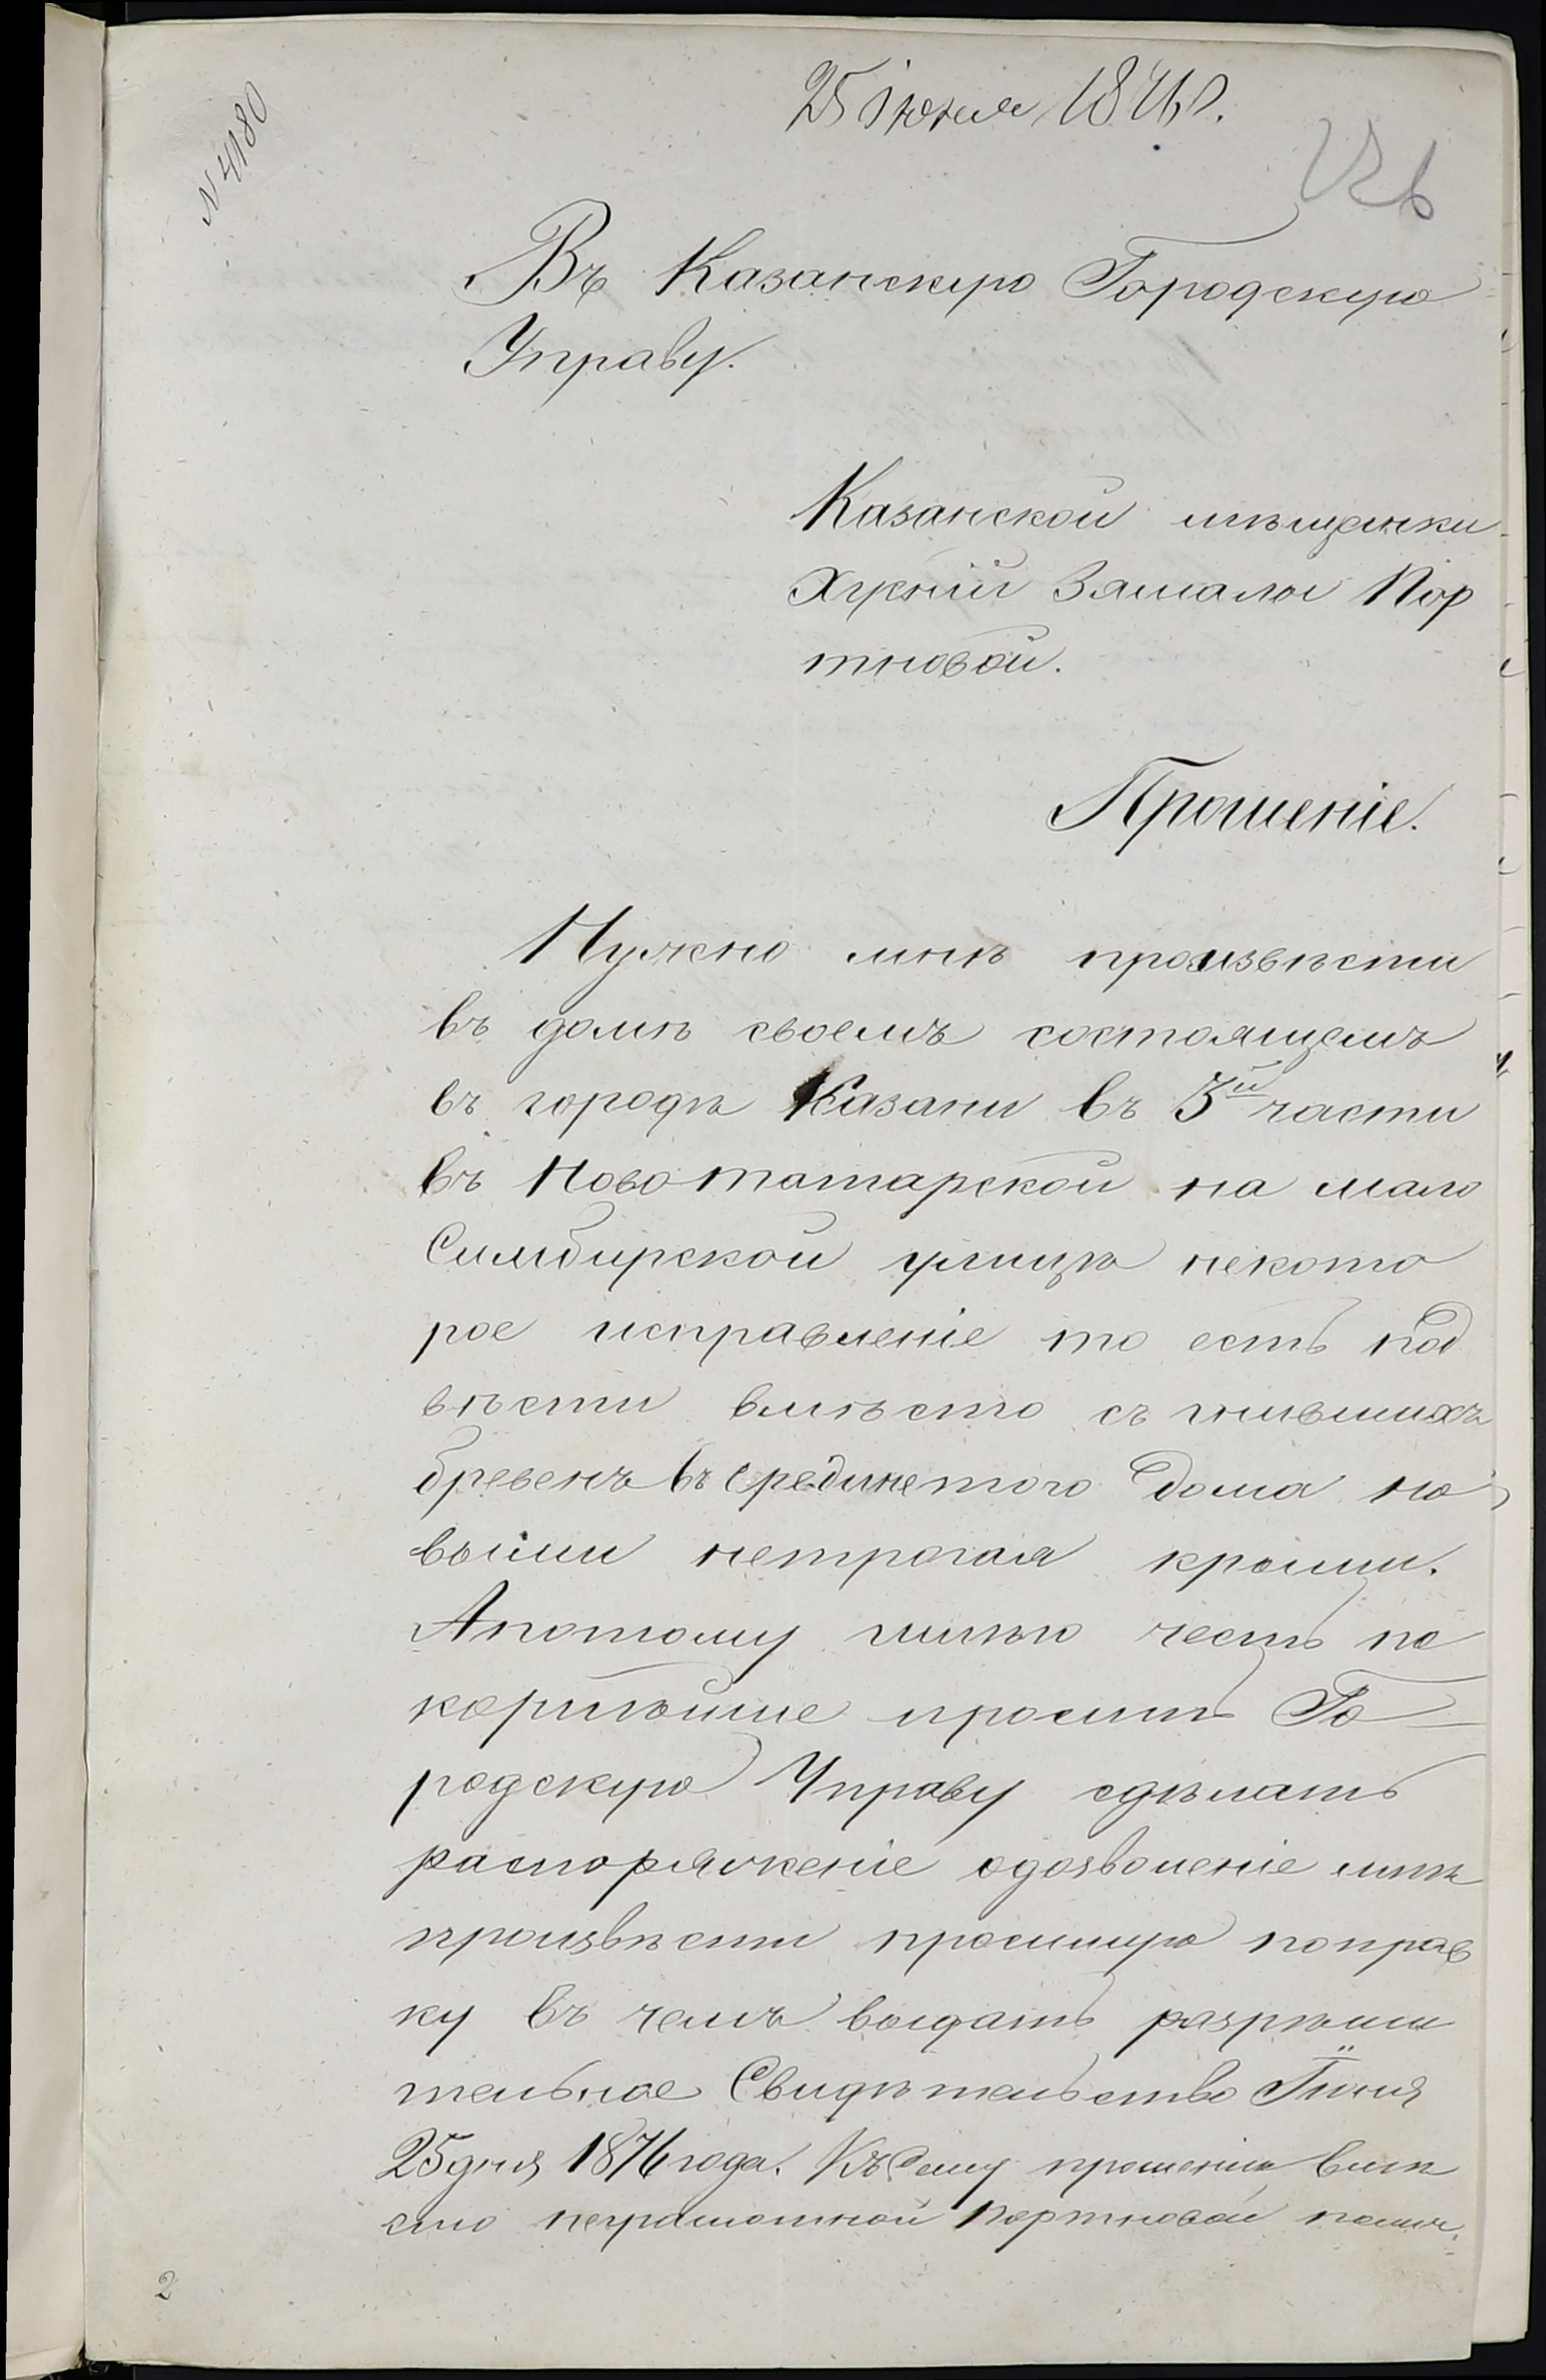 25 іюня 1876 г.
N 4180
Въ Казанскую Городскую
Управу.
Казанской мѣщанки
Хусній Зямалы Пор
тновой.
Прошеніе.
Нужно мнѣ произвѣсти
въ домѣ своемъ состоящемъ
въ городѣ Казани въ 3й части
въ Ново татарской на мало
Симбирской улицѣ некото
рое исправленіе то есть под
вѣсти вмѣсто съ гнившихъ
бревенъ въ средине того дома но
выми нетрогая крыши.
Апотому имѣю честь по
корнѣйше просить Го
родскую Управу сдѣлать
распоряженіе одозволеніе мнѣ
произвѣсти просимую поправ
ку въ чемъ выдать разрѣши
тельное Свидѣтельство Іюня
25 дня 1876 года. Къ Сему прошенію вмѣ
сто неграмотной Портновой
2